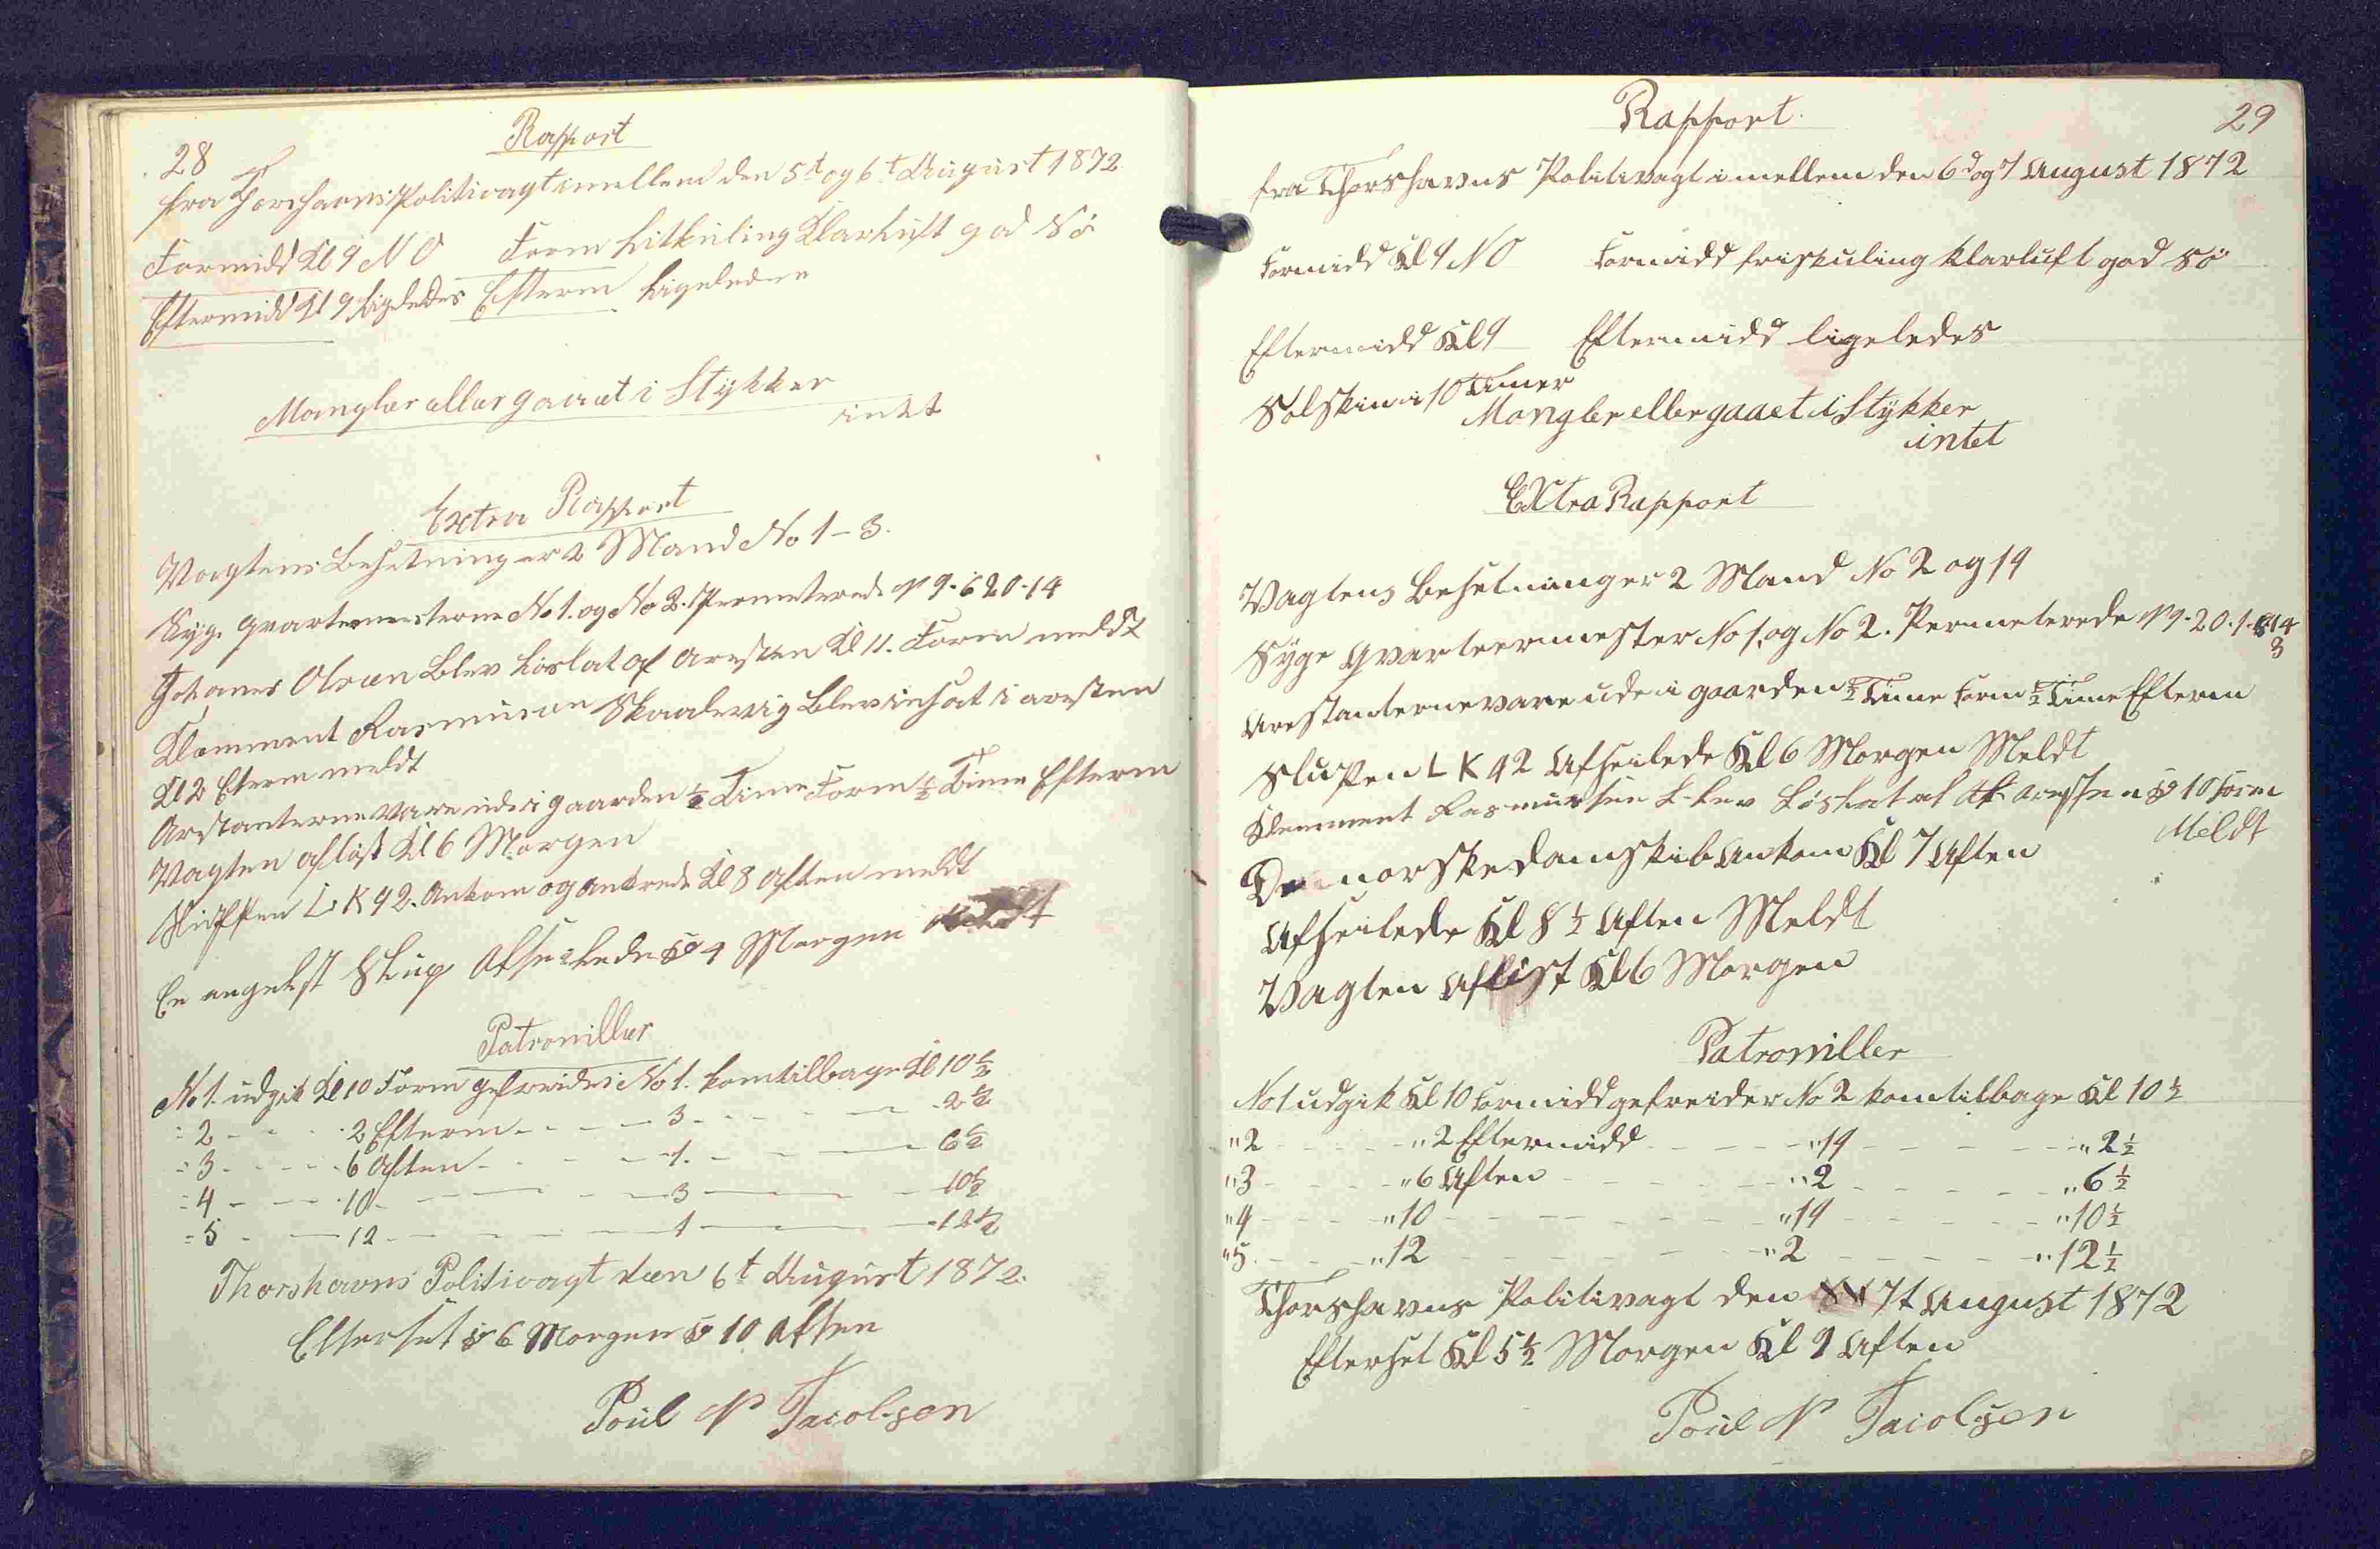 28
Rapport
fra Thorshavns Politivagt imellem den 5t og 6t August 1872
Formidd Kl 9 N O Form litkuling Klarluft god Sö
Eftermidd Kl 9 ligeledes Efterm ligeledes
Mangler eller gaaet i Stykker
intet
Extra Rapport
Vagtens Besetning er 2 Mand No 1-3.
Syge qvarteermesterne No 1. og No 2. Permeterede N 9. 6 20-14
Johanes Olsen blev löslat af aresten Kl 11. Form meldt
Klemment Rasmusen Skaalevig blev insat i aresten
Kl 2 Eterm meldt
Arestanterne vare ude i gaarden ½ Time Form ½ Time Efterm
Vagten aflöst Kl 6 Morgen
Sluppen L K 92. Ankom og ankrede Kl 8 Aften meldt
En engelst Slup Afseilede Kl 4 Morgen Meldt
Patrouiller
No 1. udgik Kl 10 Form gefreider No 1. kom tilbage Kl 10½
" 2 - - - 2 Efterm - - - 3 - - - 2½
" 3 - - - 6 Aften - - - 1. - - - 6½
" 4 - - - 10 - - - 3 - - - 10½
" 5 - - - 12 - - - 1 - - - 12½
Thorshavns Politivagt den 6t August 1872.
Efterset Kl 6 Morgen Kl 10 Aften
Poul N Jacobsen
29
Rapport
fra Thorshavns Politivagt imellem den 6d og 7 August 1872
Formidd Kl 9 N O Formidd friskuling klarluft god Sö
Eftermidd Kl 9 Eftermidd ligeledes
Solskin i 10 Timer
Mangler eller gaaet i Stykker
intet
Extra Rapport
Vagtens Besetning er 2 Mand No 2 og 19
Syge Qvarteermester No 1. og No 2. Permeterede N 9. 20. 1. 14
3
Arestanterne vare ude i gaarden ½ Time Form ½ Time Efterm
Slupen L K 92 Afseilede Kl 6 Morgen Meldt
Klemment Rasmussen blev Löslat af aresten Kl 10 Form
Meldt
De norske damskib Ankom Kl 7 Aften
Afseilede Kl 8½ Aften Meldt
Vagten Aflöst Kl 6 Morgen
Patrouiller
No 1 udgik Kl 10 Formidd gefreider No 2 kom tilbage Kl 10½
" 2 - - - " 2 Eftermidd - - - " 19 - - - " 2½
" 3 - - - " 6 Aften - - - " 2 - - - " 6½
" 4 - - - " 10 - - - " 19 - - - " 10½
" 5 - - - " 12 - - - " 2 - - - " 12½
Thorshavns Politivagt den 7t August 1872
Efterset Kl 5½ Morgen Kl 9 Aften
Poul N Jacobsen